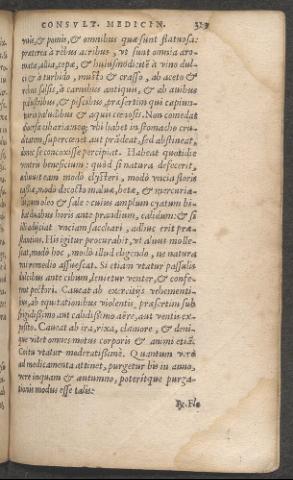 CONSVLT. MEDICIN.
uis, & pomis, & omnibus quæ sunt flatuosa:
præterea à rebus acribus, vt sunt omnia aro-
mata, allia, cepæ, & huiusmodi: tũ à vino dul-
ci & à turbido, musto & crasso, ab aceto &
rebus salsis, à carnibus antiquis, & ab auibus
palustribus, & piscibus, præsertim qui capiun-
tur in paludibus & aquis cœnosis. Non comedat
diversa obsonia: neq; vbi habet in stomacho cru-
ditatem, supercœnet aut prãdeat, sed abstineat,
donec se concoxisse percipiat. Habeat quotidie
ventris beneficium: quòd si natura defecerit,
adiuuet eam modò clysteri, modò vncia floris
cassiæ, modò decocto maluæ, betæ, & mercuria-
lis, cum oleo & sale: cuius amplum cyatum bi-
bat duabus horis ante prandium, calidum: & si
illi adijciat vnciam sacchari, adhuc erit præ-
stantius. His igitur procurabit, vt aluus molle-
scat, modò hoc, modò illud eligendo, ne natura
vni remedio assuescat. Si etiam vtatur passulis
dulcibus ante cibum, lenietur venter, & confe-
ret pectori. Caueat ab exercitijs vehementi-
bus, ab equitationibus violentis, præsertim sub
frigidissimo aut calidissimo aëre, aut ventis ex-
posito. Caueat ab ira, rixa, clamore, & deni-
que vitet omnes motus corporis & animi etiã.
Coitu vtatur moderatissimè. Quantum verò
ad medicamenta attinet, purgetur bis in anno,
vere inquam & autumno, poteritque purga-
tionis modus esse talis:
℞. Flo